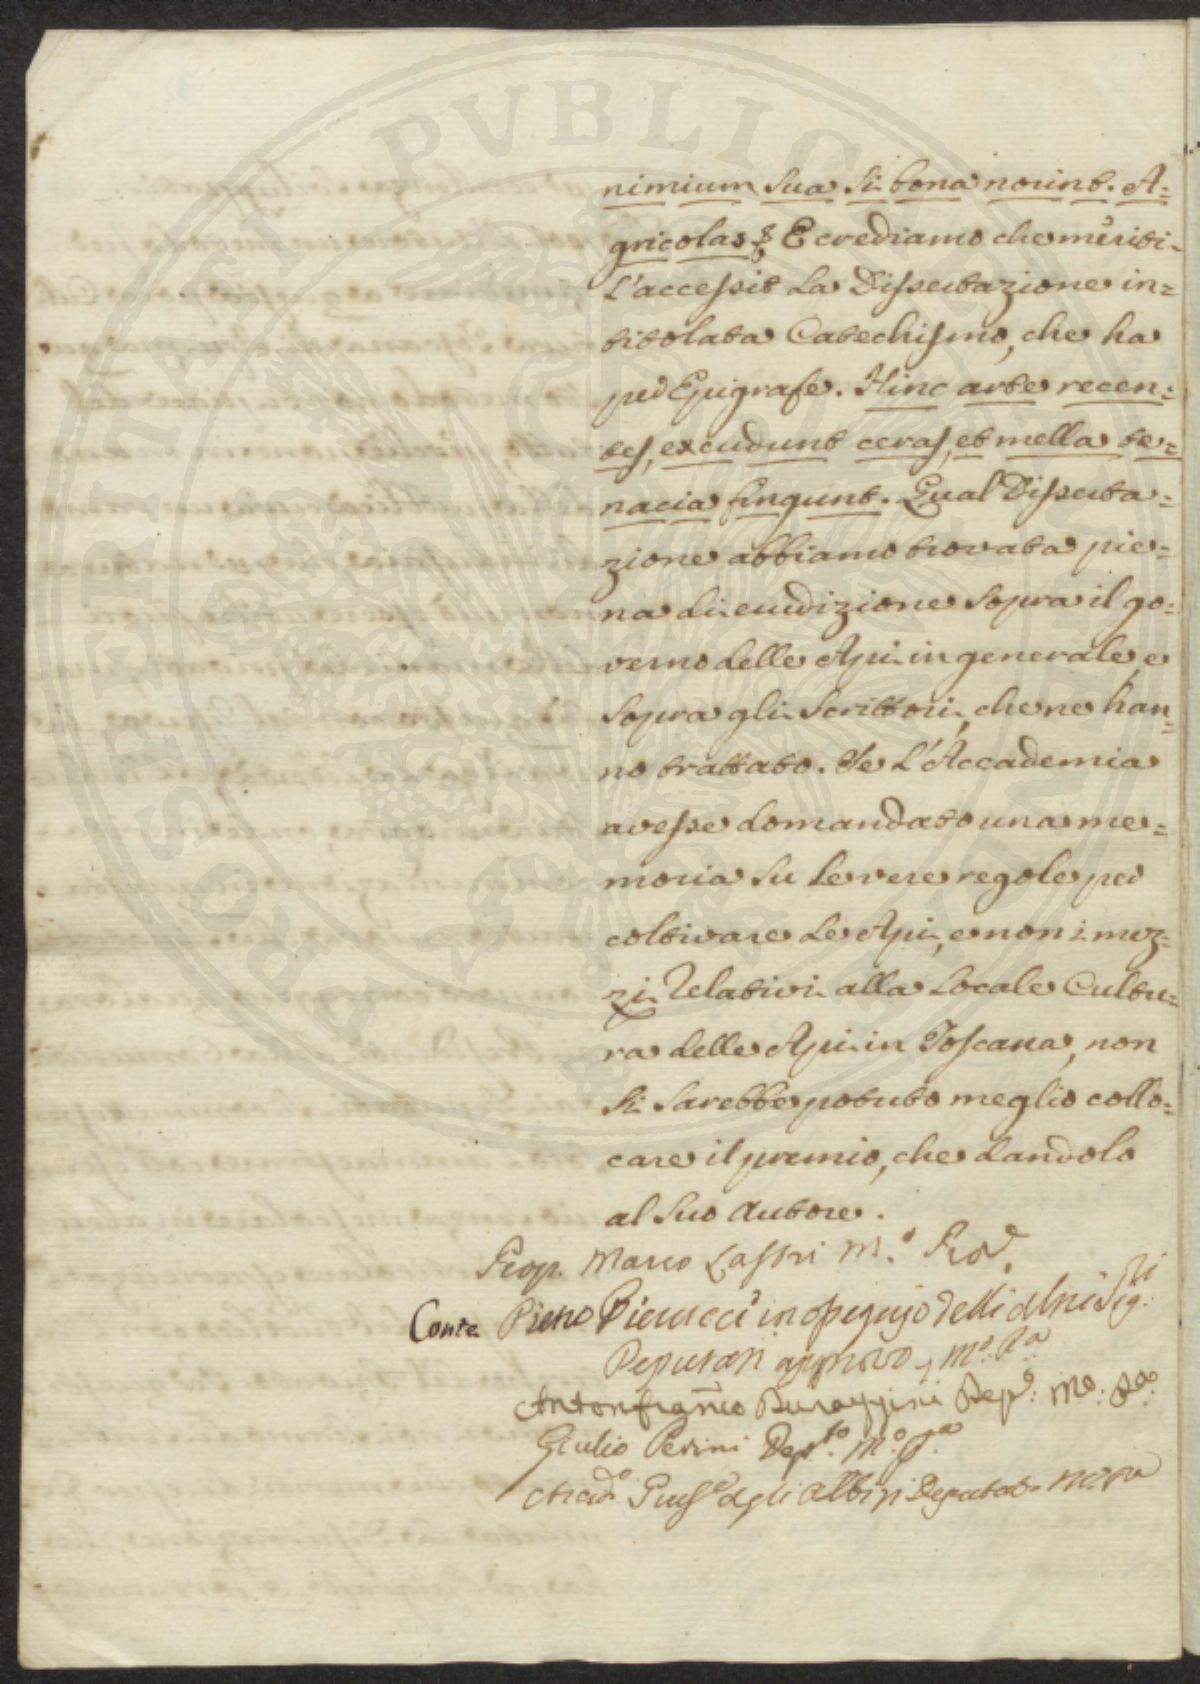 PROSPERITATI PVBLICAE
nimium sua si bona norint. A=
gricolas & E crediamo che meriti
l'accessit La Dissertazione in=
titolata Catechismo, che ha
per Epigrafe. Hinc arte recen=
tes, excudunt ceras, et mella te=
nacia fingunt. Qual Disserta=
zione abbiamo trovata pie=
na di erudizione sopra il go=
verno delle Api in generale, e
sopra gli Scrittori, che ne han=
no trattato. Se L'Accademia
avesse domandato una me=
moria su le vere regole per
coltivare Le Api, e non i mez=
zi Relativi alla Locale Cultu=
ra delle Api in Toscana, non
si sarebbe potuto meglio collo=
care il premio, che dandolo
al suo Autore.
Prop. Marco Lastri M.º
Conte Piero Pierucci in delli
Deputati approvo, Mº. Pª
Antonfranco Dep.º: Mº: Pª.
Giulio Perini Dep.to Mº. Pª
Giusº degli Albizi Deputato Mº. Pª